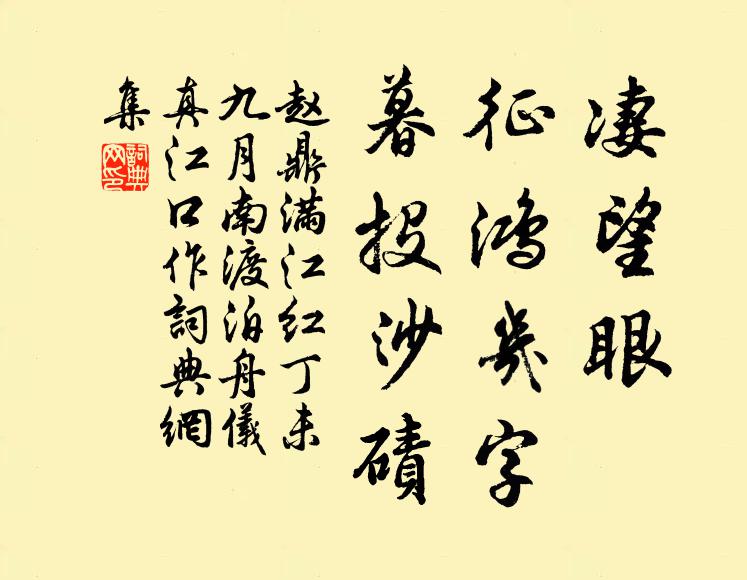 凄望眼
征鸿几字
暮投沙碛
赵鼎满江红丁未
九月南渡泊舟仪
真江口作詞典網
集
詞典
网